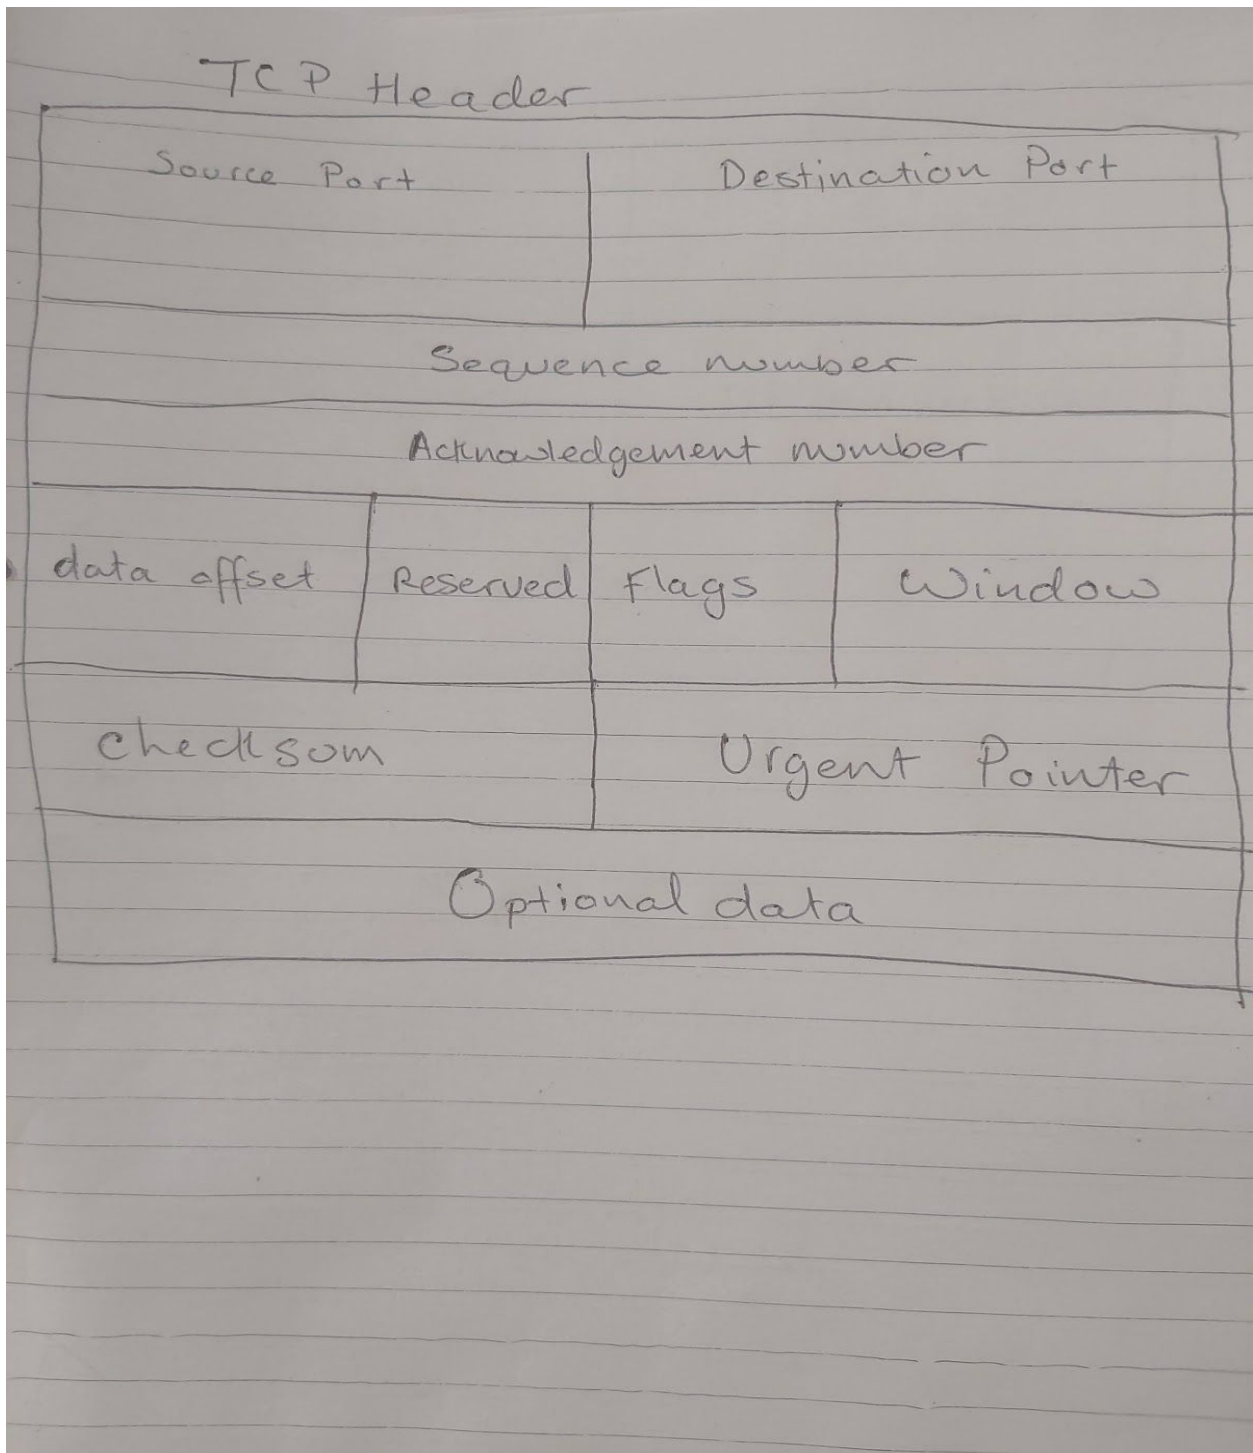 TCP Header
Source Port Destination Port
Sequence number
Acknowledgement number
data offset Reserved Flags Window
checksom Urgent Pointer
Optional data